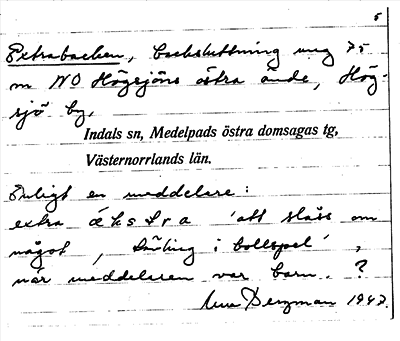 5
Extrabacken, backsluttning ung 75
m NO Högsjöns östra ände, Hög-
sjö by,
Indals sn, Medelpads östra domsagas tg,
Västernorrlands län.
Enligt en meddelare:
extra äkstra 'att slåss om
något, tävling i bollspel',
när meddelaren var barn. ?
Bergman 1947.